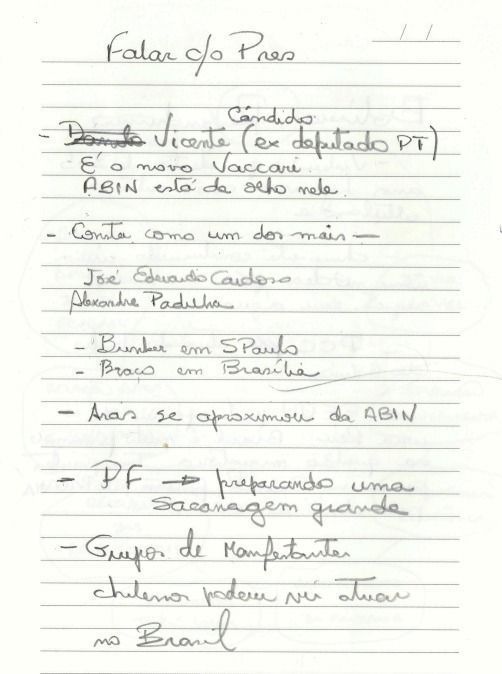 / /
Falar c/o Pres
Cândido
- Danilo Vicente (ex deputado PT)
É o novo Vaccari.
ABIN está de olho nele.
- Consta como um dos mais —
José Eduardo Cardoso
Alexandre Padilha
- Bunker em SPaulo
- Braço em Brasília
- Aras se aproximou da ABIN
- PF → preparando uma
sacanagem grande
- Grupos de Manifestantes
chilenos podem vir atuar
no Brasil